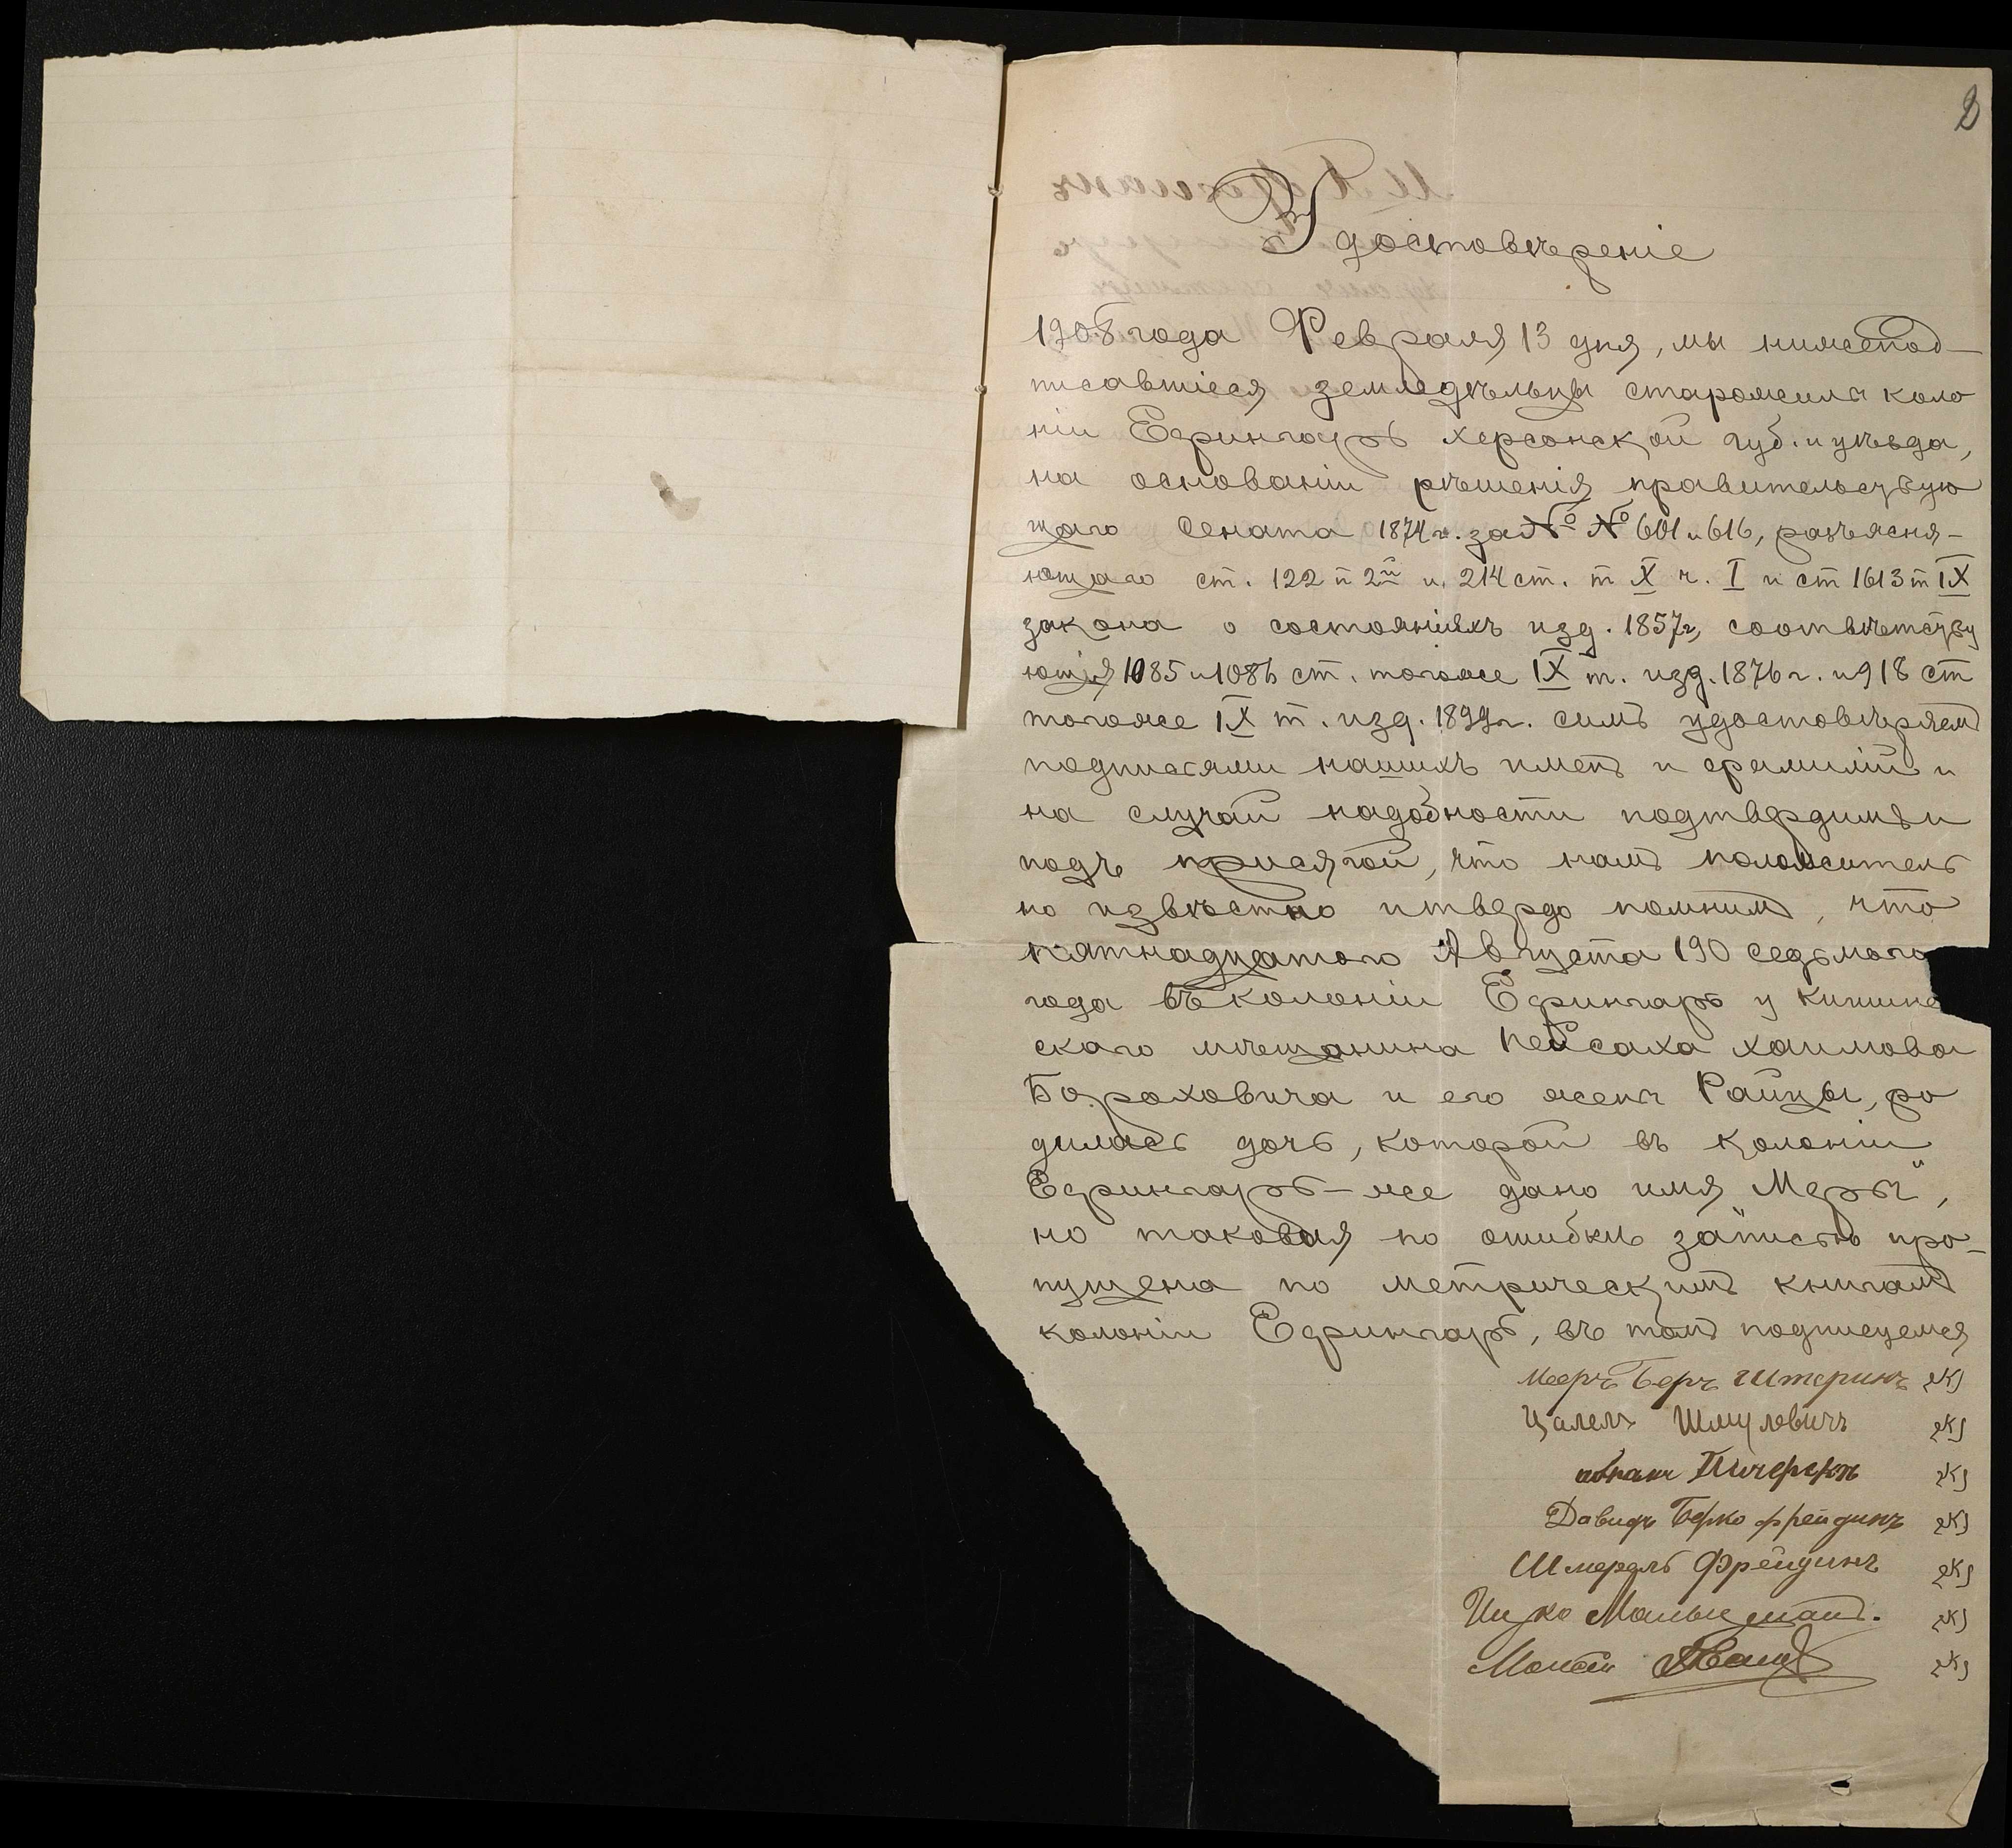 2
Удостовѣреніе
1908 года Февраля 13 дня, мы нижепод-
писавшіеся земледѣльцы старожилы коло
ніи Ефингаръ Херсонской губ. и уѣзда,
на основаніи рѣшенія правительствую
щаго Сената 1874 г. за № № 601 и 616, разъясня-
ющаго ст. 122 п 2й и 214 ст. т X ч. I и ст 1613 т IX
закона о состояніяхъ изд. 1857 г, соотвѣтству
ющія 1085 и 1086 ст. тогоже IX т. изд. 1876 г. и 918 ст
тогоже IX т. изд. 1899 г. симъ удостовѣряемъ
подписями нашихъ именъ и фамилій и
на случай надобности подтвердимъ и
подъ присягой, что намъ положитель
но извѣстно и твердо помнимъ, что
пятнадцатого Августа 190 седьмого
года въ колоніи Ефингаръ у кишине
скаго мѣщанина Пейсаха Хаимова
Бораховича и его жены Райцы, ро
дилась дочь, которой въ колоніи
Ефингаръ-же дано имя Меры",
но таковая по ошибкѣ записью про-
пущена по метрическимъ книгамъ
колоніи Ефингаръ, въ томъ подписуемся
Мееръ Беръ Штеринъ
Цалел Шмулевичъ
Давидъ Берко Фрейдинъ
Шмерель Фрейдинъ
Ицко